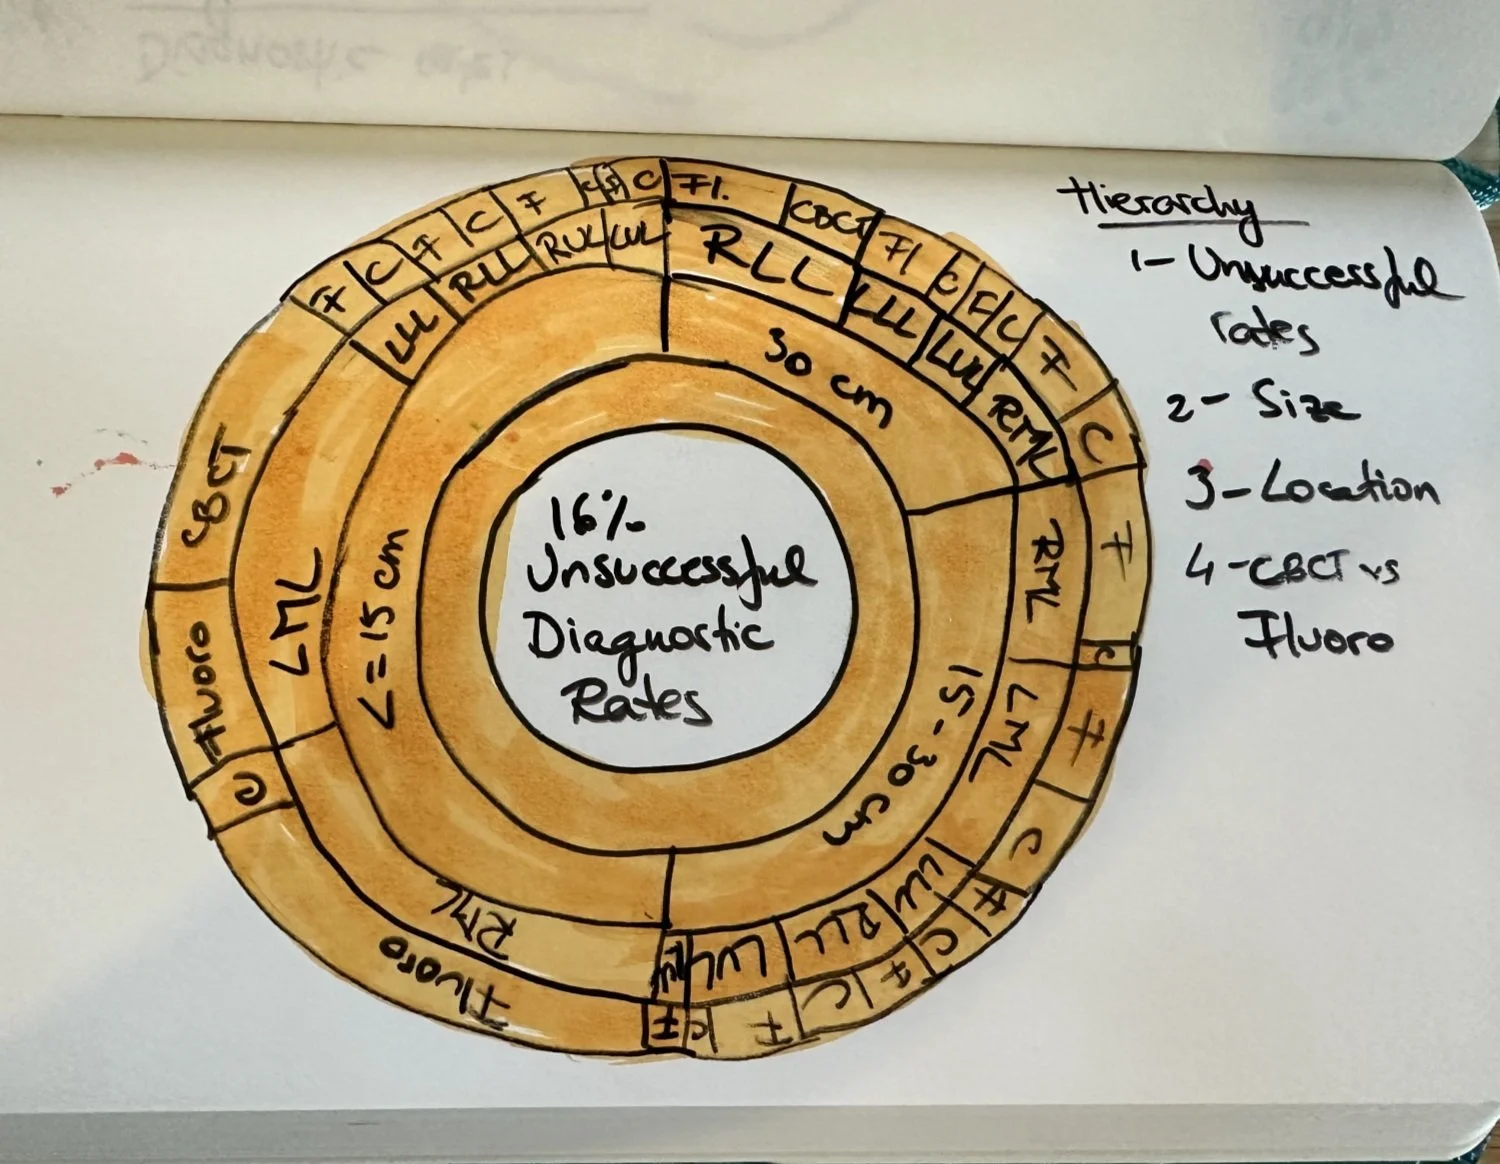 Diagnostic
Hierarchy
1- Unsuccessful
rates
2- Size
3- Location
4- CBCT vs
Fluoro
16%
Unsuccessful
Diagnostic
Rates
30 cm
15-30 cm
<=15 cm
RLL
LLL
LUL
RML
RML
LML
LLL
RLL
LUL
RML
LML
LLL
RLL
RUL
LUL
Fl.
CBCT
Fl
C
F
C
F
C
F
C
F
C
F
C
F
C
F
C
F
Fluoro
C
Fluoro
CBCT
F
C
F
C
F
C